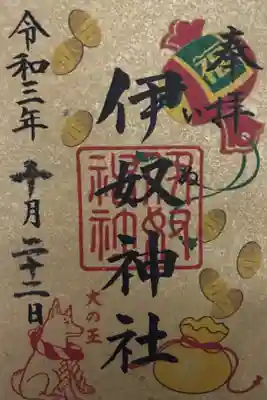 奉拝
福
いぬ
伊奴神社
伊奴
神社
令和三年十月二十二日
犬の王